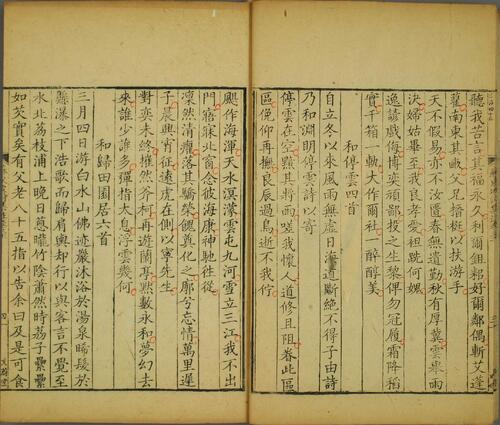 聽我苦言其福永久利爾鉏耜好爾鄰偶斬艾蓬
藋南東其畝父兄搢梃以抶游手
天不假易亦不汝匱春無遺勤秋有厚冀雲舉雨
決婦姑畢至我良孝愛袒跣何媿
逸諺戲侮博奕頑鄙投之生黎俾勿冠履霜降稻
實千箱一軌大作爾社一醉醇美
和停雲四首
自立冬以來風雨無虛日海道斷絕不得子由詩
乃和淵明停雲詩以寄
停雲在空黯其將雨嗟我懷人道修且阻眷此區
區俛仰再撫良辰過鳥逝不我佇
颶作海渾天水溟濛雲屯九河雪立三江我不出
門寤寐北窗念彼海康神馳往從
凜然清癯落其驕榮饋奠化之廓兮忘情萬里遲
子晨興宵征遠虎在側以寧先生
對奕未終摧然斧柯再遊蘭亭默數永和夢幻去
來誰少誰多彈指太息浮雲幾何
和歸田園居六首
三月四日游白水山佛迹巖沐浴於湯泉晞髮於
懸瀑之下浩歌而歸肩輿却行以與客言不覺至
水北荔枝浦上晚日葱曨竹陰蕭然時荔子纍纍
如芡實矣有父老八十五指以告余曰及是可食
四